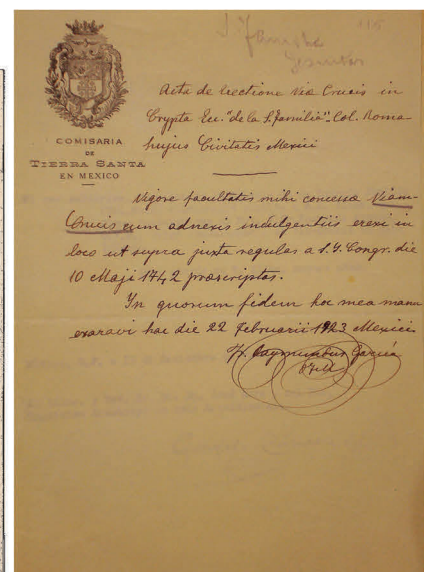 S. Familia 115
Jesuitas
COMISARIA
DE
TIERRA SANTA
EN MEXICO
Acta de Erectione Via Crucis in
Crypta Ecc. "de la S. Familia" Col. Roma
hujus Civitatis Mexici
Vigore facultatis mihi concessæ Viam-
Crucis cum adnexis indulgentiis erexi in
loco ut supra juxta regulas a S. I. Congr. die
10 Maji 1742 præscriptas.
In quorum fidem hac mea manu
exaravi hac die 22 Februarii 1923 Mexici.
Fr. Raymundus García
OFM